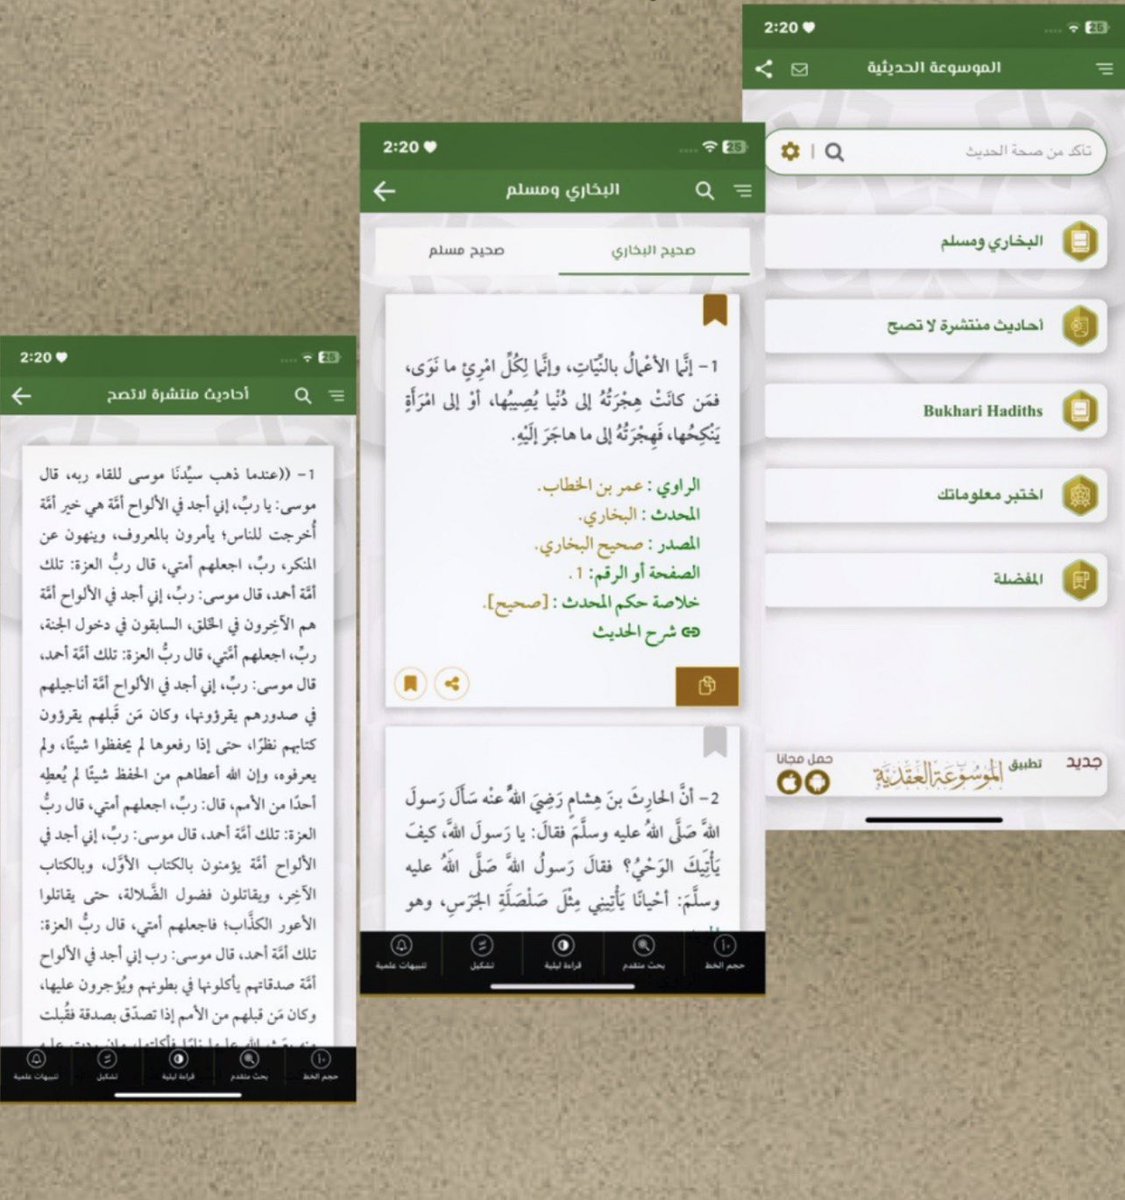 2:20
25
الموسوعة الحديثية
تأكد من صحة الحديث
البخاري ومسلم
أحاديث منتشرة لا تصح
Bukhari Hadiths
اختبر معلوماتك
المفضلة
جديد تطبيق الموسوعة العقدية حمل مجانا
2:20
25
البخاري ومسلم
صحيح البخاري
صحيح مسلم
1- إنَّما الأعْمالُ بالنِّيّاتِ، وإنَّما لِكُلِّ امْرِئٍ ما نَوَى،
فمَن كانَتْ هِجْرَتُهُ إلى دُنْيا يُصِيبُها، أوْ إلى امْرَأَةٍ
يَنْكِحُها، فَهِجْرَتُهُ إلى ما هاجَرَ إلَيْهِ.
الراوي : عمر بن الخطاب.
المحدث : البخاري.
المصدر : صحيح البخاري.
الصفحة أو الرقم: 1.
خلاصة حكم المحدث : [صحيح].
شرح الحديث
2- أنَّ الحارِثَ بنَ هِشامٍ رَضِيَ اللهُ عنْه سَأَلَ رَسولَ
اللهِ صَلَّى اللهُ عليه وسلَّمَ فقالَ: يا رَسولَ اللهِ، كيفَ
يَأْتِيكَ الوَحْيُ؟ فقالَ رَسولُ اللهِ صَلَّى اللهُ عليه
وسلَّمَ: أحْيانًا يَأْتِينِي مِثْلَ صَلْصَلَةِ الجَرَسِ، وهو
حجم الخط
بحث متقدم
قراءة ليلية
تشكيل
تنبيهات علمية
2:20
25
أحاديث منتشرة لاتصح
1- ((عندما ذهب سيِّدنَا موسى للقاء ربه، قال
موسى: يا ربِّ، إني أجد في الألواح أمَّة هي خير أمَّة
أُخرجت للناس؛ يأمرون بالمعروف، وينهون عن
المنكر، ربِّ، اجعلهم أمتي، قال ربُّ العزة: تلك
أمَّة أحمد، قال موسى: ربِّ، إني أجد في الألواح أمَّة
هم الآخِرون في الخَلق، السابقون في دخول الجنة،
ربِّ، اجعلهم أمَّتي، قال ربُّ العزة: تلك أمَّة أحمد،
قال موسى: ربِّ، إني أجد في الألواح أمَّة أناجيلهم
في صدورهم يقرؤونها، وكان مَن قَبلهم يقرؤون
كتابهم نظرًا، حتى إذا رفعوها لم يحفظوا شيئًا، ولم
يعرفوه، وإن الله أعطاهم من الحفظ شيئًا لم يُعطِه
أحدًا من الأمم، قال: ربِّ، اجعلهم أمتي، قال ربُّ
العزة: تلك أمَّة أحمد، قال موسى: ربِّ، إني أجد في
الألواح أمَّة يؤمنون بالكتاب الأوَّل، وبالكتاب
الآخِر، ويقاتلون فضول الضَّلالة، حتى يقاتلوا
الأعور الكذَّاب؛ فاجعلهم أمتي، قال ربُّ العزة:
تلك أمَّة أحمد، قال موسى: رب إني أجد في الألواح
أمَّة صدقاتهم يأكلونها في بطونهم ويُؤجرون عليها،
وكان مَن قبلهم من الأمم إذا تصدّق بصدقة فقُبلت
حجم الخط
بحث متقدم
قراءة ليلية
تشكيل
تنبيهات علمية